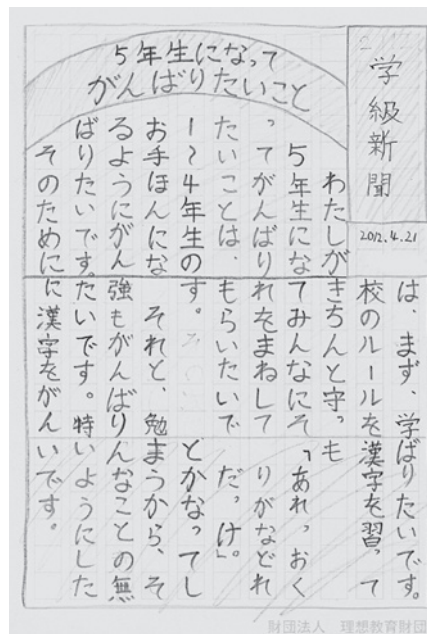 学級新聞
2012.4.21
5年生になって
がんばりたいこと
わたしが
5年生にな
ってがんばり
たいことは、
1〜4年生の
お手ほんにな
るようにがん
ばりたいです。
そのために
は、まず、学
校のルールを
きちんと守っ
てみんなにそ
れをまねして
もらいたいで
す。
それと、勉
強もがんばり
たいです。特
に漢字をがん
ばりたいです。
漢字を習って
も
「あれっ、おく
りがなどれ
だっけ」。
とかなってし
まうから、そ
んなことの無
いようにした
いです。
財団法人 理想教育財団